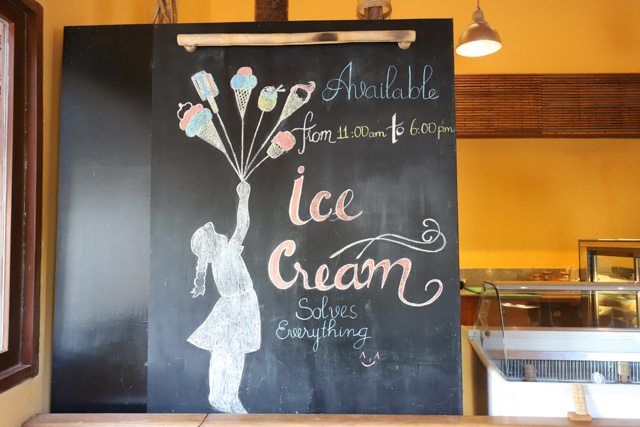 Available
from 11:00am to 6:00pm
ice
Cream
Solves
Everything